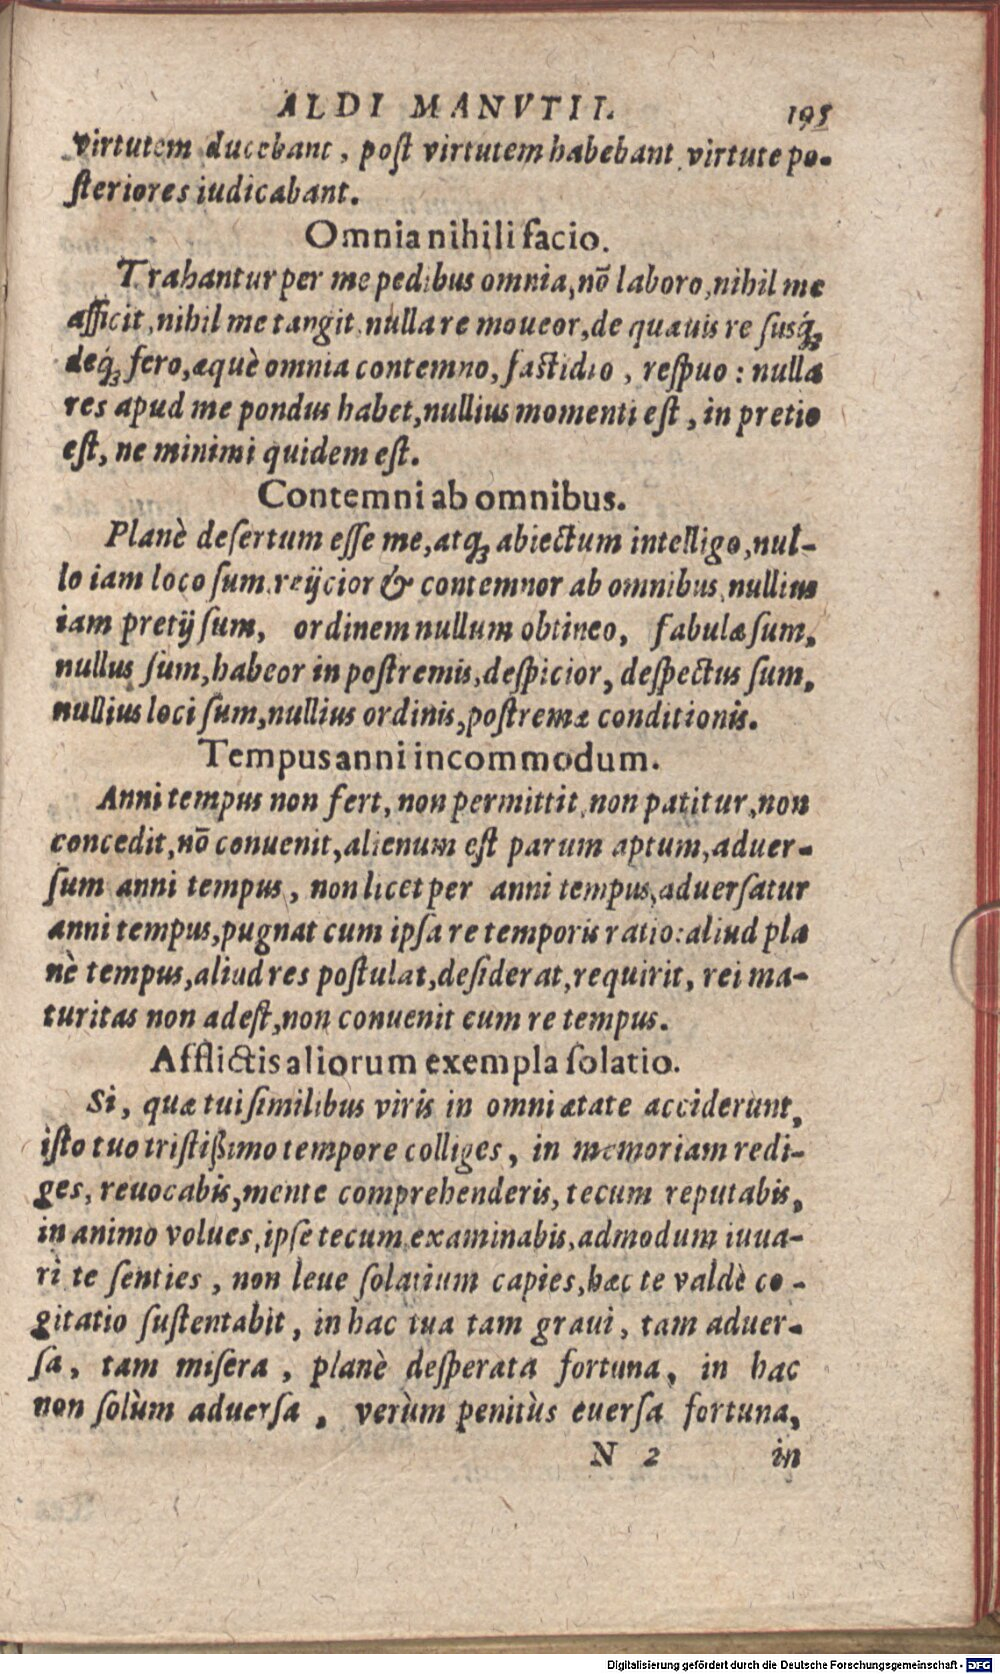 ALDI MANVTII. 195
virtutem ducebant, poſt virtutem habebant, virtute po-
ſteriores iudicabant.
Omnia nihili facio.
Trahantur per me pedibus omnia, nō laboro, nihil me
afficit, nihil me tangit, nulla re moueor, de quauis re ſusq́;
deq́; fero, æquè omnia contemno, faſtidio, reſpuo: nulla
res apud me pondus habet, nullius momenti eſt, in pretio
eſt, ne minimi quidem eſt.
Contemni ab omnibus.
Planè deſertum eſſe me, atq; abiectum intelligo, nul-
lo iam loco ſum, reijcior & contemnor ab omnibus, nullius
iam pretij ſum, ordinem nullum obtineo, fabulæ ſum,
nullus ſum, habeor in poſtremis, deſpicior, deſpectus ſum,
nullius loci ſum, nullius ordinis, poſtremæ conditionis.
Tempus anni incommodum.
Anni tempus non fert, non permittit, non patitur, non
concedit, nō conuenit, alienum eſt parum aptum, aduer-
ſum anni tempus, non licet per anni tempus, aduerſatur
anni tempus, pugnat cum ipſa re temporis ratio: aliud pla
nè tempus, aliud res poſtulat, deſiderat, requirit, rei ma-
turitas non adeſt, non conuenit cum re tempus.
Afflictis aliorum exempla ſolatio.
Si, quæ tui ſimilibus viris in omni ætate acciderunt,
iſto tuo triſtißimo tempore colliges, in memoriam redi-
ges, reuocabis, mente comprehenderis, tecum reputabis,
in animo volues, ipſe tecum examinabis, admodum iuua-
ri te ſenties, non leue ſolatium capies, hæc te valdè co-
gitatio ſuſtentabit, in hac tua tam graui, tam aduer-
ſa, tam miſera, planè deſperata fortuna, in hac
non ſolùm aduerſa, verùm penitùs euerſa fortuna,
N 2 in
Digitalisierung gefördert durch die Deutsche Forschungsgemeinschaft - DFG